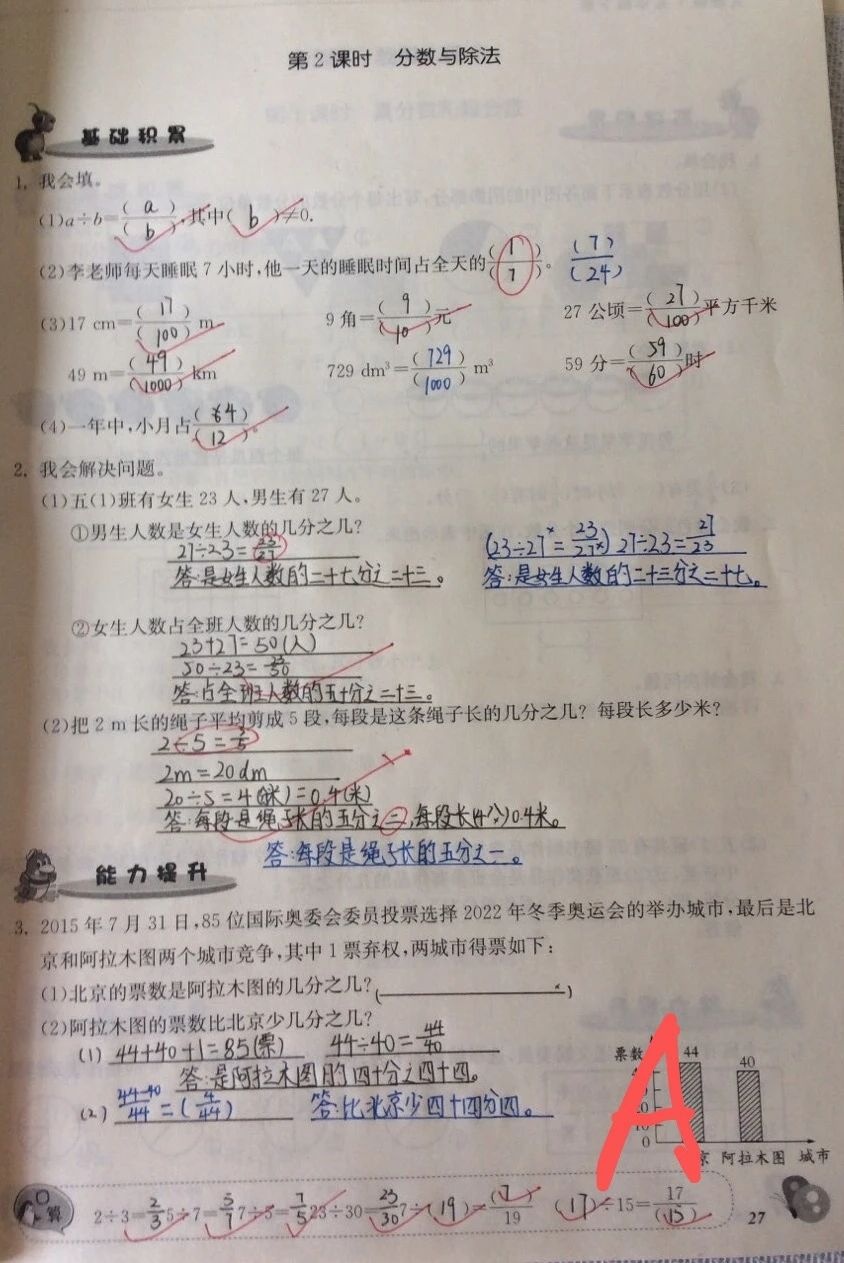 第2课时 分数与除法
基础积累
1. 我会填。
(1)a÷b=(a)/(b),其中(b)≠0.
(2)李老师每天睡眠7小时,他一天的睡眠时间占全天的(1)/(7)。 (7)/(24)
(3)17 cm=(17)/(100) m 9角=(9)/(10)元 27公顷=(27)/(100)平方千米
49 m=(49)/(1000) km 729 dm³=(729)/(1000) m³ 59分=(59)/(60)时
(4)一年中,小月占(4)/(12)。
2. 我会解决问题。
(1)五(1)班有女生23人,男生有27人。
①男生人数是女生人数的几分之几?
27÷23=23/27 (23÷27=23/27) 27÷23=27/23
答:是女生人数的二十七分之二十三。 答:是女生人数的二十三分之二十七。
②女生人数占全班人数的几分之几?
23+27=50(人)
50÷23=23/50
答:占全班人数的五十分之二十三。
(2)把2 m长的绳子平均剪成5段,每段是这条绳子长的几分之几?每段长多少米?
2÷5=2/5
2m=20dm
20÷5=4(米)=0.4(米)
答:每段是绳子长的五分之二,每段长0.4米。
答:每段是绳子长的五分之一。
能力提升
3. 2015年7月31日,85位国际奥委会委员投票选择2022年冬季奥运会的举办城市,最后是北
京和阿拉木图两个城市竞争,其中1票弃权,两城市得票如下:
(1)北京的票数是阿拉木图的几分之几?
(2)阿拉木图的票数比北京少几分之几?
(1) 44+40+1=85(票) 44÷40=44/40
答:是阿拉木图的四十分之四十四。
(2) 44-40/44=(4/44) 答:比北京少四十四分四。
票数
44
40
0
京 阿拉木图 城市
A
口算
2÷3=2/3 5÷7=5/7 7÷5=7/5 23÷30=23/30 7÷(19)=(7)/19 (17)÷15=17/(15)
27